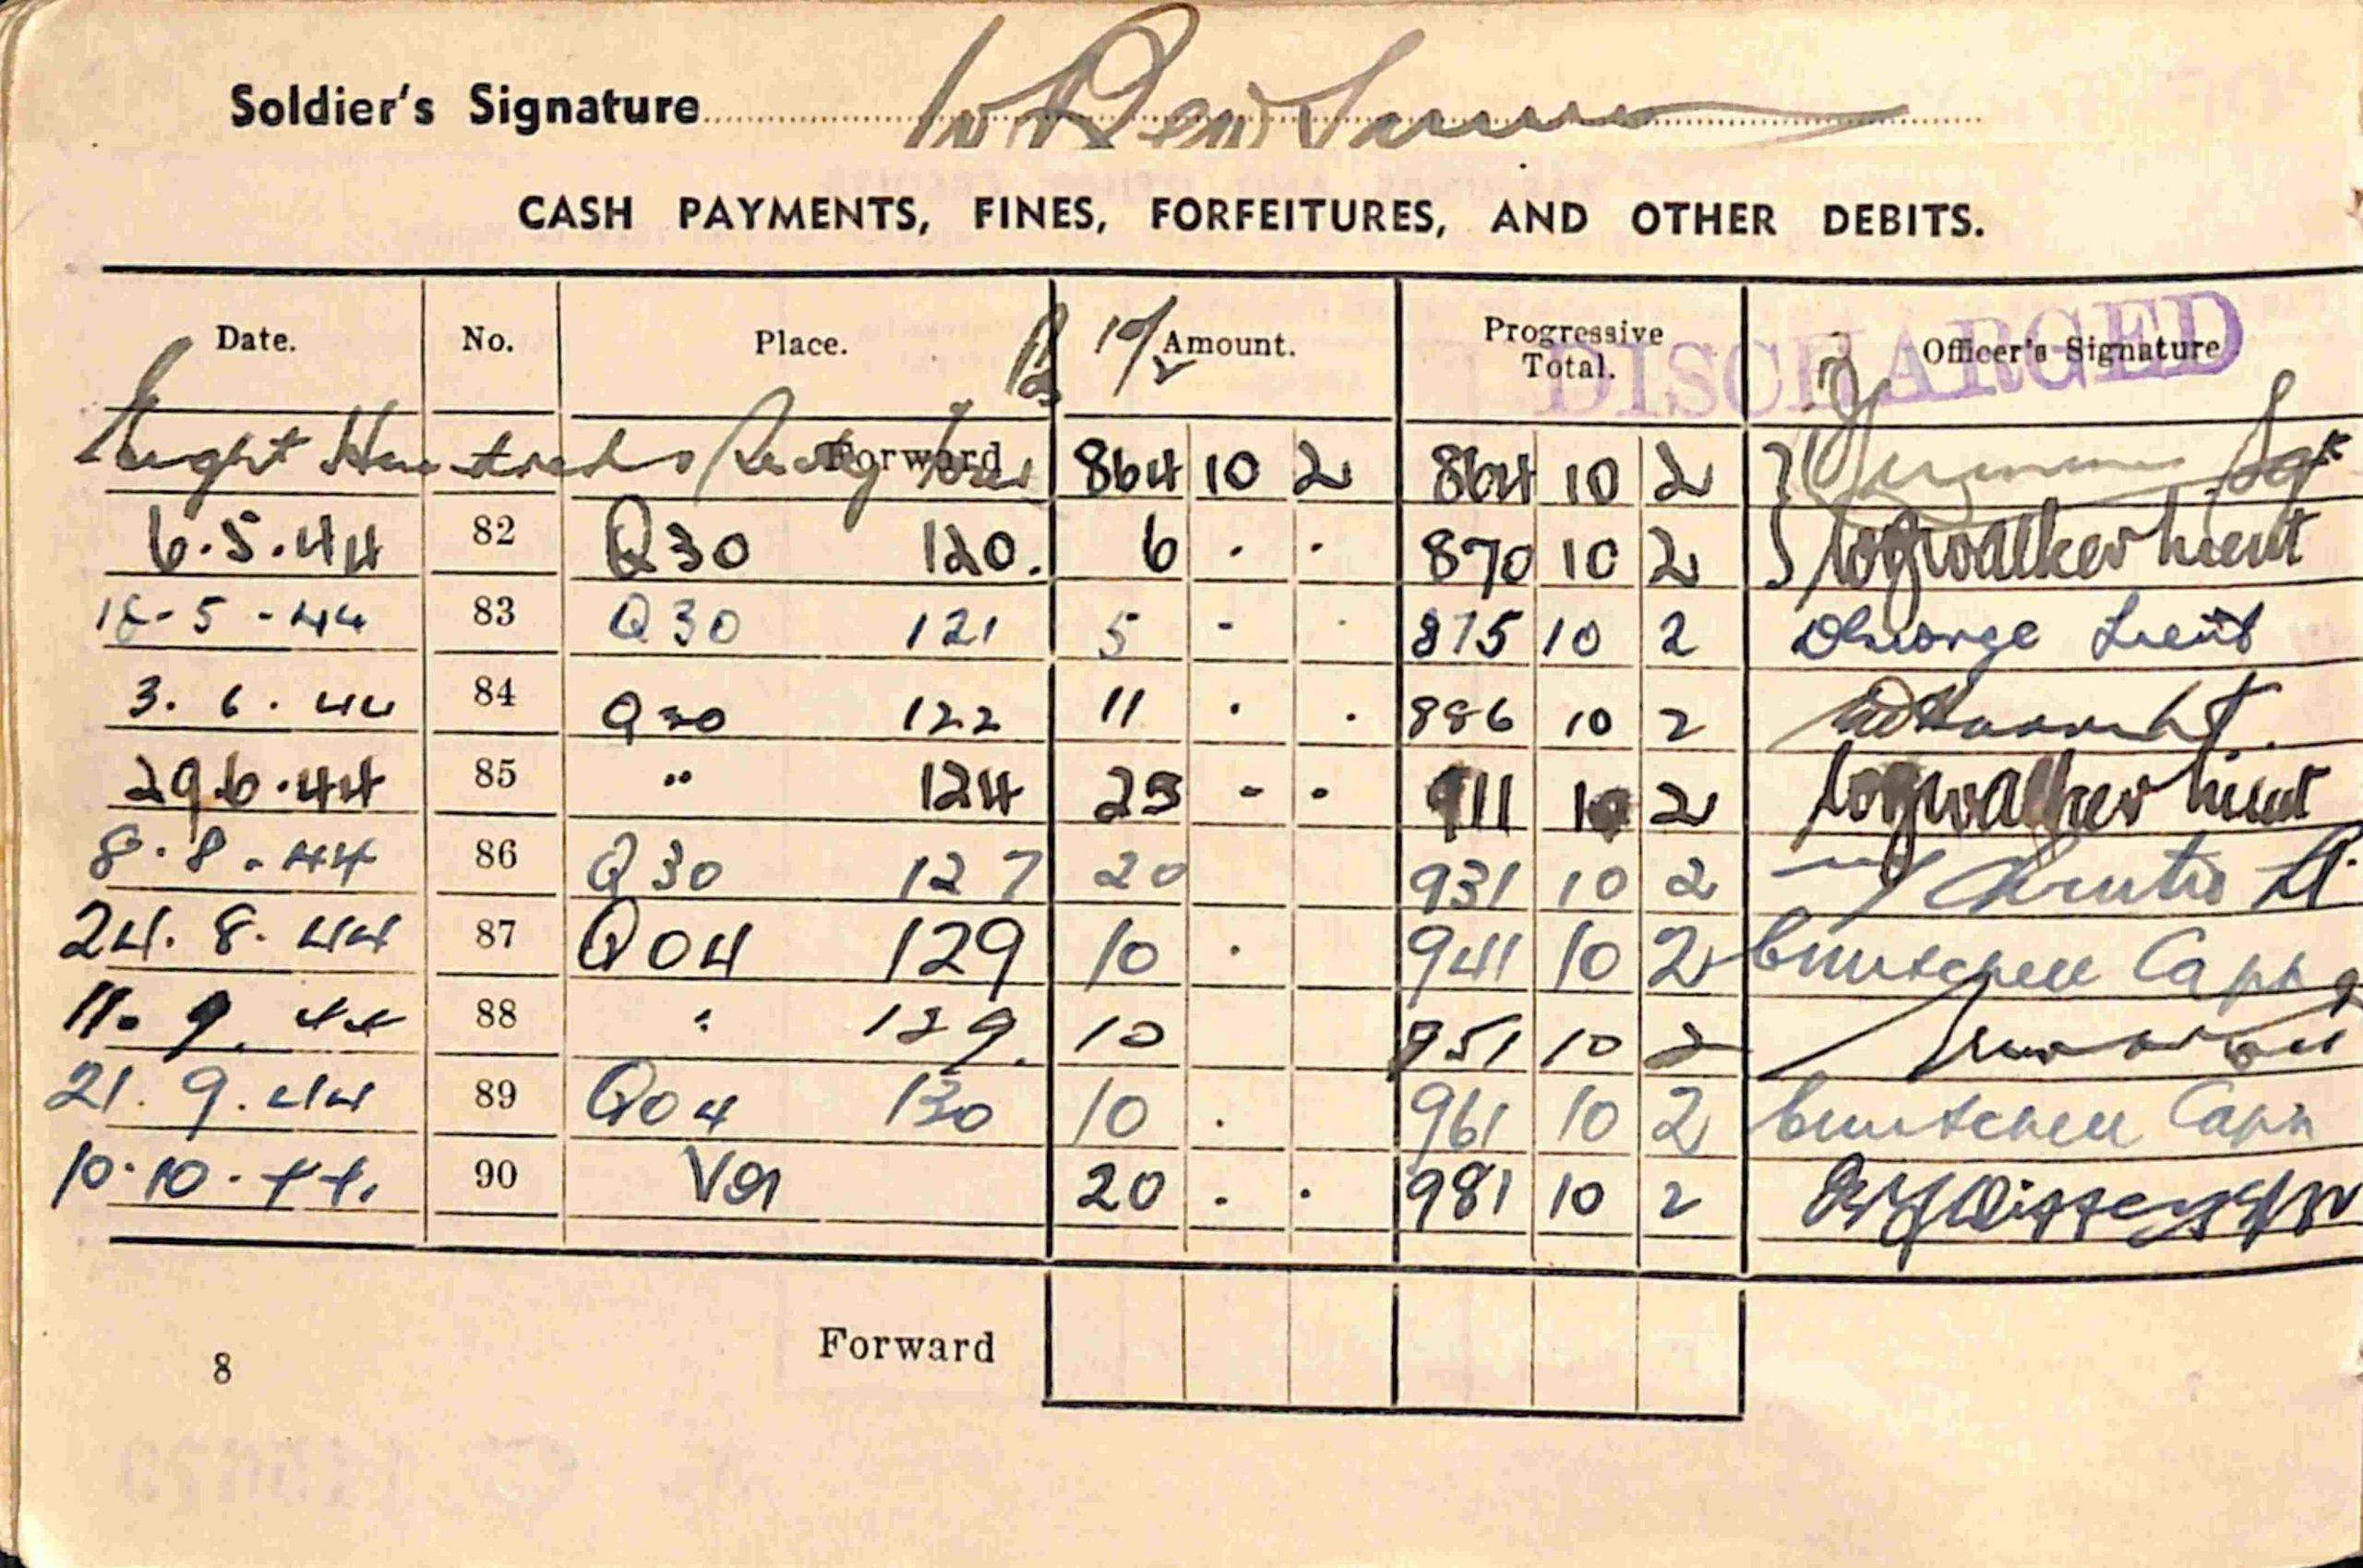 Soldier's Signature
CASH PAYMENTS, FINES, FORFEITURES, AND OTHER DEBITS.
Date. No. Place. Amount. Progressive Total. Officer's Signature
DISCHARGED
Eight Hundred Forward 864 10 2 864 10 2 Sgt
6.5.44 82 Q30 120. 6 . . 870 10 2 Walker Lieut
18-5-44 83 Q30 121 5 - . 875 10 2 George Lieut
3.6.44 84 Q30 122 11 . . 886 10 2
29.6.44 85 " 124 25 - - 911 10 2 Walker Lieut
8.8.44 86 Q30 127 20 931 10 2 Lt.
24.8.44 87 Q04 129 10 . 941 10 2 Capt
11.9.44 88 " 129. 10 951 10 2
21.9.44 89 Q04 130 10 . 961 10 2 Capt
10.10.44. 90 VO1 20 . . 981 10 2
Forward
8